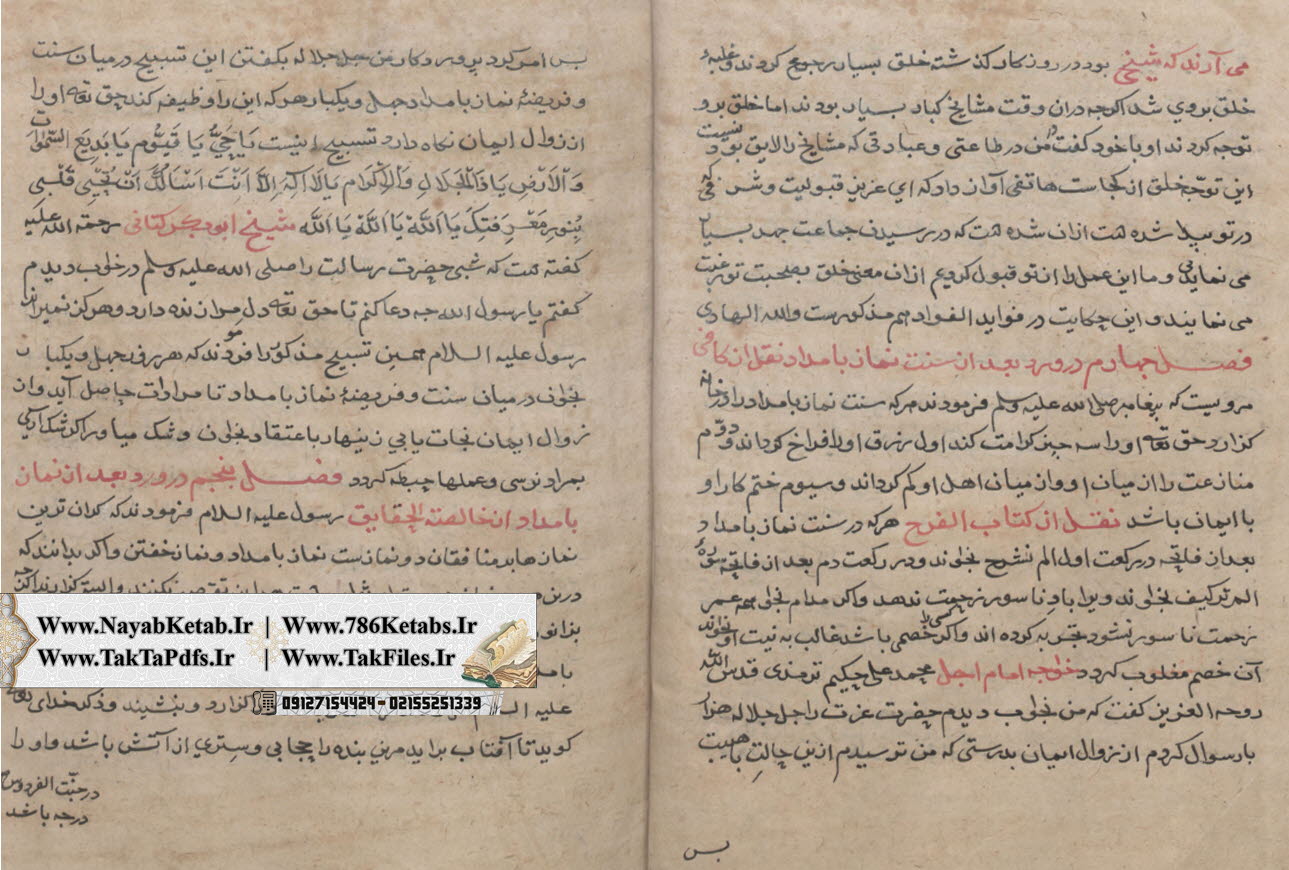 می آرند که شیخ بود در روزگار گذشته خلق بسیار رجوع کردند و غلبهٔ
خلق بروی شد اگرچه دران وقت مشایخ کبار بسیار بودند اما خلق برو
توجه کردند او با خود گفت من در طاعتی و عبادتی که مشایخ را لایق بود نیست
این توجه خلق از کجاست هاتفی آواز داد که ای عزیز قبولیت و شرفی که
در تو پیدا شده است ازان شده است که در رسیدن جماعت جهد بسیار
می نمایی و ما این عمل را از تو قبول کردیم ازان معنی خلق بصحبت تو رغبت
می نمایند و این حکایت در فواید الفواد هم مذکورست والله الهادی
فصل چهارم در ورد بعد از سنت نماز بامداد نقل از کافی
مرویست که پیغامبر صلی الله علیه وسلم فرمودند هر که سنت نماز بامداد را در خانه
گزارد حق تعه او را سه چیز کرامت کند اول رزق او را فراخ گرداند و دوم
منازعت را از میان او و از میان اهل او کم گرداند و سیوم ختم کار او
با ایمان باشد نقل از کتاب الفرح هرکه در سنت نماز بامداد
بعد از فاتحه در رکعت اول الم نشرح بخواند و در رکعت دم بعد از فاتحه سورهٔ
الم ترکیف بخواند ویرا باد ناسور زحمت ندهد و اگر مدام بخواند همه عمر
زحمت ناسور نشود تجربه کرده اند و اگر کسی را خصمی باشد غالب به نیت او بخواند
آن خصم مغلوب گردد خواجه امام اجل محمد علی حکیم ترمذی قدس الله
روحه العزیز گفت که من بخواب دیدم حضرت عزت را جل جلاله هزار
بار سوال کردم از زوال ایمان بدرستی که من ترسیدم ازین حالت با هیبت
پس
پس امر کرد پروردگار من جل جلاله بگفتن این تسبیح در میان سنت
و فریضهٔ نماز بامداد چهل و یکبار هر که این را وظیفه کند حق تعه او را
از زوال ایمان نگاه دارد تسبیح اینست یَا حَیُّ یَا قَیُّوم یَا بَدِیعَ السَّمٰوَاتِ
وَالْاَرْضِ یَا ذَالْجَلَالِ وَالْاِکْرَام یَا لَا اِلٰهَ اِلَّا اَنْتَ اَسْاَلُكَ اَنْ تُحْیِیَ قَلْبِی
بِنُورِ مَعْرِفَتِكَ یَا اَللّٰه یَا اَللّٰه یَا اَللّٰه شیخ ابوبکر کتانی رحمة الله علیه
گفته است که شبی حضرت رسالت را صلی الله علیه وسلم در خواب دیدم
گفتم یا رسول الله چه دعا کنم تا حق تعه دل مرا زنده دارد و هرگز نمیراند
رسول علیه السلام همین تسبیح مذکور را فرمودند که هر روز چهل و یکبار
بخوان در میان سنت و فریضهٔ نماز بامداد تا مرادات حاصل آید و از
زوال ایمان نجات یابی زینهار باعتقاد بخوان و شک میاور اگر شک آری
بمراد نرسی و عملها حبطه گردد فصل پنجم در ورد بعد از نماز
بامداد از خالصة الحقایق رسول علیه السلام فرمودند که گران ترین
نمازها بر منافقان دو نمازست نماز بامداد و نماز خفتن و اگر بدانند که
Www.NayabKetab.Ir | Www.786Ketabs.Ir
Www.TakTaPdfs.Ir | Www.TakFiles.Ir
09127154424 - 02155251339
گزارد و بنشیند و ذکر خدای تعه
گوید تا آفتاب براید مرین بنده را حجابی و ستری از آتش باشد و او را
در جنت الفردوس
درجه باشد